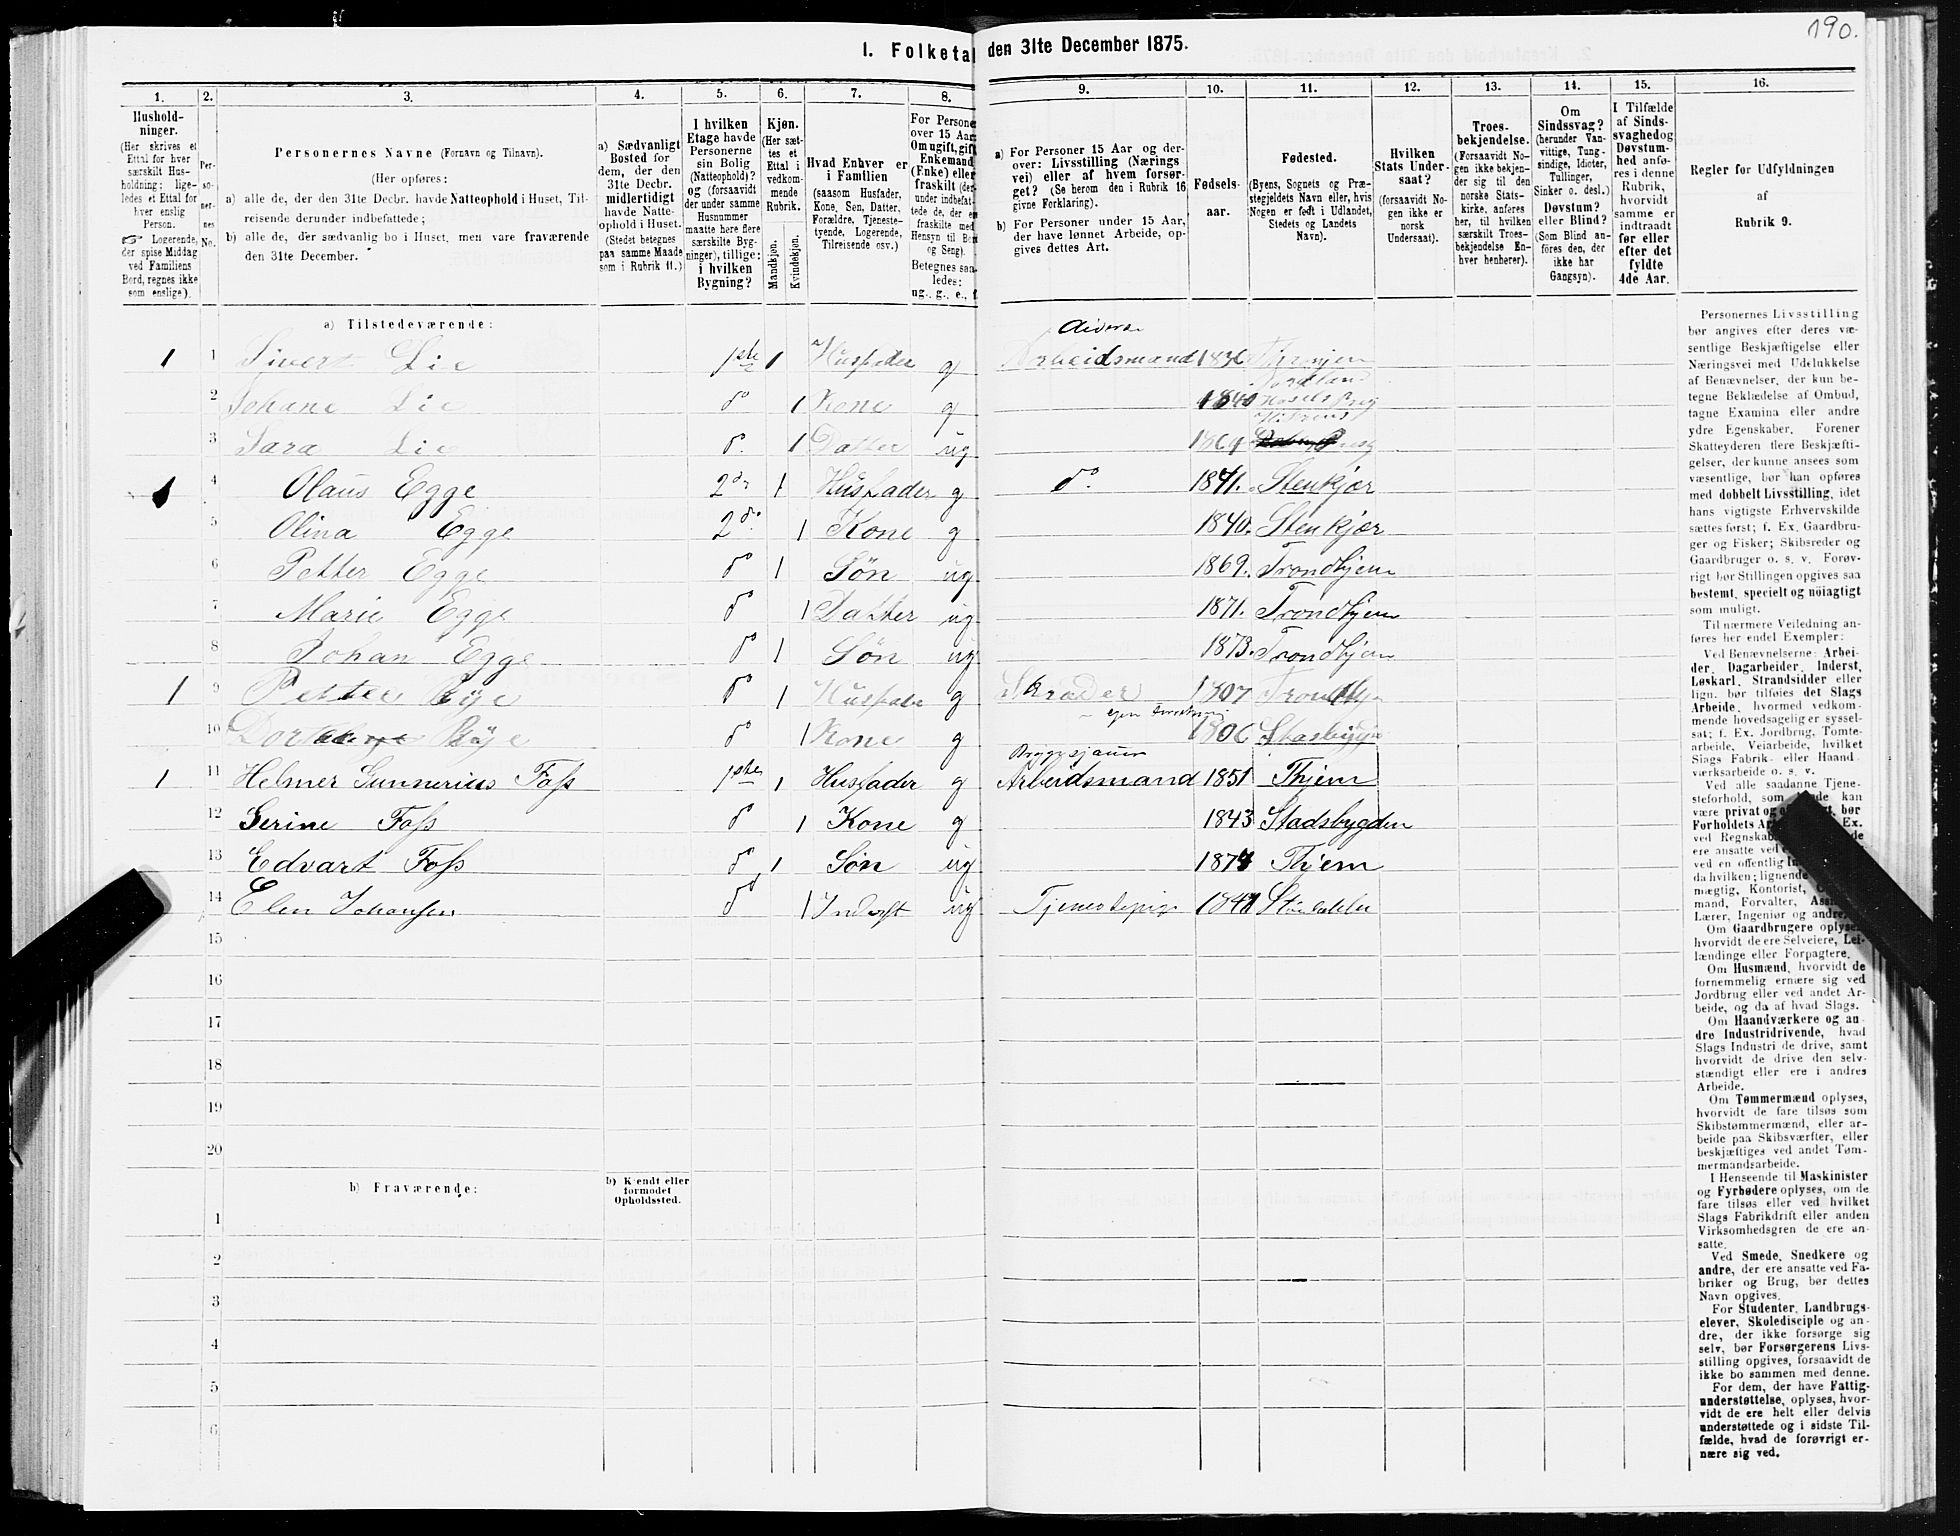 190.
1. Folketal den 31te December 1875.
1. 2. 3. 4. 5. 6. 7. 8. 9. 10. 11. 12. 13. 14. 15. 16.
Husholdninger.
(Her skrives et
Ettal for hver
særskilt Husholdning;
ligeledes et Ettal for
hver enslig
Person.
☞ Logerende,
der spise Middag
ved Familiens
Bord, regnes ikke
som enslige).
Personernes No.
Personernes Navne (Fornavn og Tilnavn).
(Her opføres:
a) alle de, der den 31te Decbr. havde Natteophold i Huset, Tilreisende
derunder indbefattede;
b) alle de, der sædvanlig bo i Huset, men vare fraværende
den 31te December.
a) Sædvanligt
Bosted for
dem, der den
31te Decbr.
midlertidigt
havde Natteophold
i Huset.
(Stedet betegnes
paa samme Maade
som i Rubrik 11.)
I hvilken
Etage havde
Personerne
sin Bolig
(Natteophold)?
og (forsaavidt
der under samme
Husnummer
maatte here flere
særskilte Bygninger),
tillige:
i hvilken
Bygning?
Kjøn.
(Her sættes
et
Ettal i
vedkommende
Rubrik.
Mandkjøn.
Kvindekjøn.
Hvad Enhver er
i Familien
(saasom Husfader,
Kone, Søn, Datter,
Forældre, Tjenestetyende,
Logerende,
Tilreisende osv.)
For Persone
over 15 Aar
Om ugift, gift
Enkemand
(Enke) eller
fraskilt
Betegnes saaledes:
ug., g., e., f.
a) For Personer 15 Aar og derover:
Livsstilling (Næringsvei)
eller af hvem forsørget?
(Se herom den i Rubrik 16
givne Forklaring).
b) For Personer under 15 Aar,
der have lønnet Arbeide, opgives
dettes Art.
Fødselsaar.
Fødested.
(Byens, Sognets og Præstegjeldets
Navn eller, hvis
Nogen er født i Udlandet,
Stedets og Landets
Navn).
Hvilken
Stats Undersaat?
(forsaavidt Nogen
ikke er
norsk
Undersaat).
Troesbekjendelse.
(Forsaavidt Nogen
ikke bekjender
sig til den
norske Statskirke,
anføres
her, til hvilken
særskilt Troesbekjendelse
Enhver
henhører).
Om
Sindssvag?
(herunder Vanvittige,
Tungsindige,
Idioter,
Tullinger,
Sinker o. desl.)
Døvstum?
eller Blind?
(Som Blind anføres
den, der
ikke har
Gangsyn).
I Tilfælde
af Sindssvaghed
og
Døvstumhed
anføres
i denne
Rubrik,
hvorvidt
samme er
indtraadt
før eller
efter det
fyldte
4de Aar.
Regler for Udfyldningen
af
Rubrik 9.
a) Tilstedeværende:
1 1 Sivert Lie 1ste 1 Husfader g Arbeidsmand 1836
2 Johane Lie do 1 Kone g 1840
3 Sara Lie do 1 Datter ug
4 Olaus Egge 2de 1 Husfader g do. 1841. Stenkjær
5 Olina Egge 2do. 1 Kone g 1840. Stenkjær
6 Petter Egge do 1 Søn ug 1869. Trondhjem
7 Marie Egge do 1 Datter ug 1871. Trondhjem
8 Johan Egge do 1 Søn ug 1873. Trondhjem
1 9 Petter Rye do 1 Husfader g Skræder 1807
10 Rye do 1 Kone g 1806
Bryggesjauer
1 11 Helmer Gunnerius Foss 1ste 1 Husfader g Arbeidsmand 1851 Thjem
12 Serine Foss do 1 Kone g 1843 Stadsbygden
13 Edvart Foss do 1 Søn ug 1874 Thjem
14 Elen Johansen do 1 ug Tjenestepige
15
16
17
18
19
20
b) Fraværende:
b) Kjendt eller
formodet
Opholdssted.
1
2
3
4
5
6
Personernes Livsstilling
bør angives efter deres væsentlige
Beskjæftigelse eller
Næringsvei med Udelukkelse
af Benævnelser, der kun betegne
Beklædelse af Ombud,
tagne Examina eller andre
ydre Egenskaber. Forener
Skatteyderen flere Beskjæftigelser,
der kunne ansees som
væsentlige, bør han opføres
med dobbelt Livsstilling, idet
hans vigtigste Erhvervskilde
sættes først; f. Ex. Gaardbruger
og Fisker; Skibsreder og
Gaardbruger o. s. v. Forøvrigt
bør Stillingen opgives saa
bestemt, specielt og nöiagtigt
som muligt.
Til nærmere Veiledning anføres
her endel Exempler:
Ved Benævnelserne: Arbeider,
Dagarbeider, Inderst,
Løskarl, Strandsidder eller
lign. bør tilføies det Slags
Arbeide, hvormed vedkommende
hovedsagelig er sysselsat;
f. Ex. Jordbrug, Tomtearbeide,
Veiarbeide, hvilket
Slags Fabrik- eller Haandværksarbeide
o. s. v.
Ved alle saadanne Tjenesteforhold,
Om Gaardbrugere oplyses,
hvorvidt de ere Selveiere, Leilændinge
eller Forpagtere.
Om Husmænd, hvorvidt de
fornemmelig ernære sig ved
Jordbrug eller ved andet Arbeide,
og da af hvad Slags.
Om Haandværkere og andre
Industridrivende, hvad
Slags Industri de drive, samt
hvorvidt de drive den selvstændigt
eller ere i andres
Arbeide.
Om Tømmermænd oplyses,
hvorvidt de fare tilsøs som
Skibstømmermænd, eller arbeide
paa Skibsværfter, eller
beskjæftiges ved andet Tømmermandsarbeide.
I Henseende til Maskinister
og Fyrbødere oplyses, om de
fare tilsøs eller ved hvilket
Slags Fabrikdrift eller anden
Virksomhedsgren de ere ansatte.
Ved Smede, Snedkere og
andre, der ere ansatte ved Fabriker
og Brug, bør dettes
Navn opgives.
For Studenter, Landbrugselever,
Skoledisciple og andre,
der ikke forsørge sig
selv, bør Forsørgerens Livsstilling
opgives, forsaavidt de
ikke bo sammen med denne.
For dem, der have Fattigunderstøttelse,
oplyses, hvorvidt
de ere helt eller delvis
understøttede og i sidste Tilfælde,
hvad de forøvrigt ernære
sig ved.